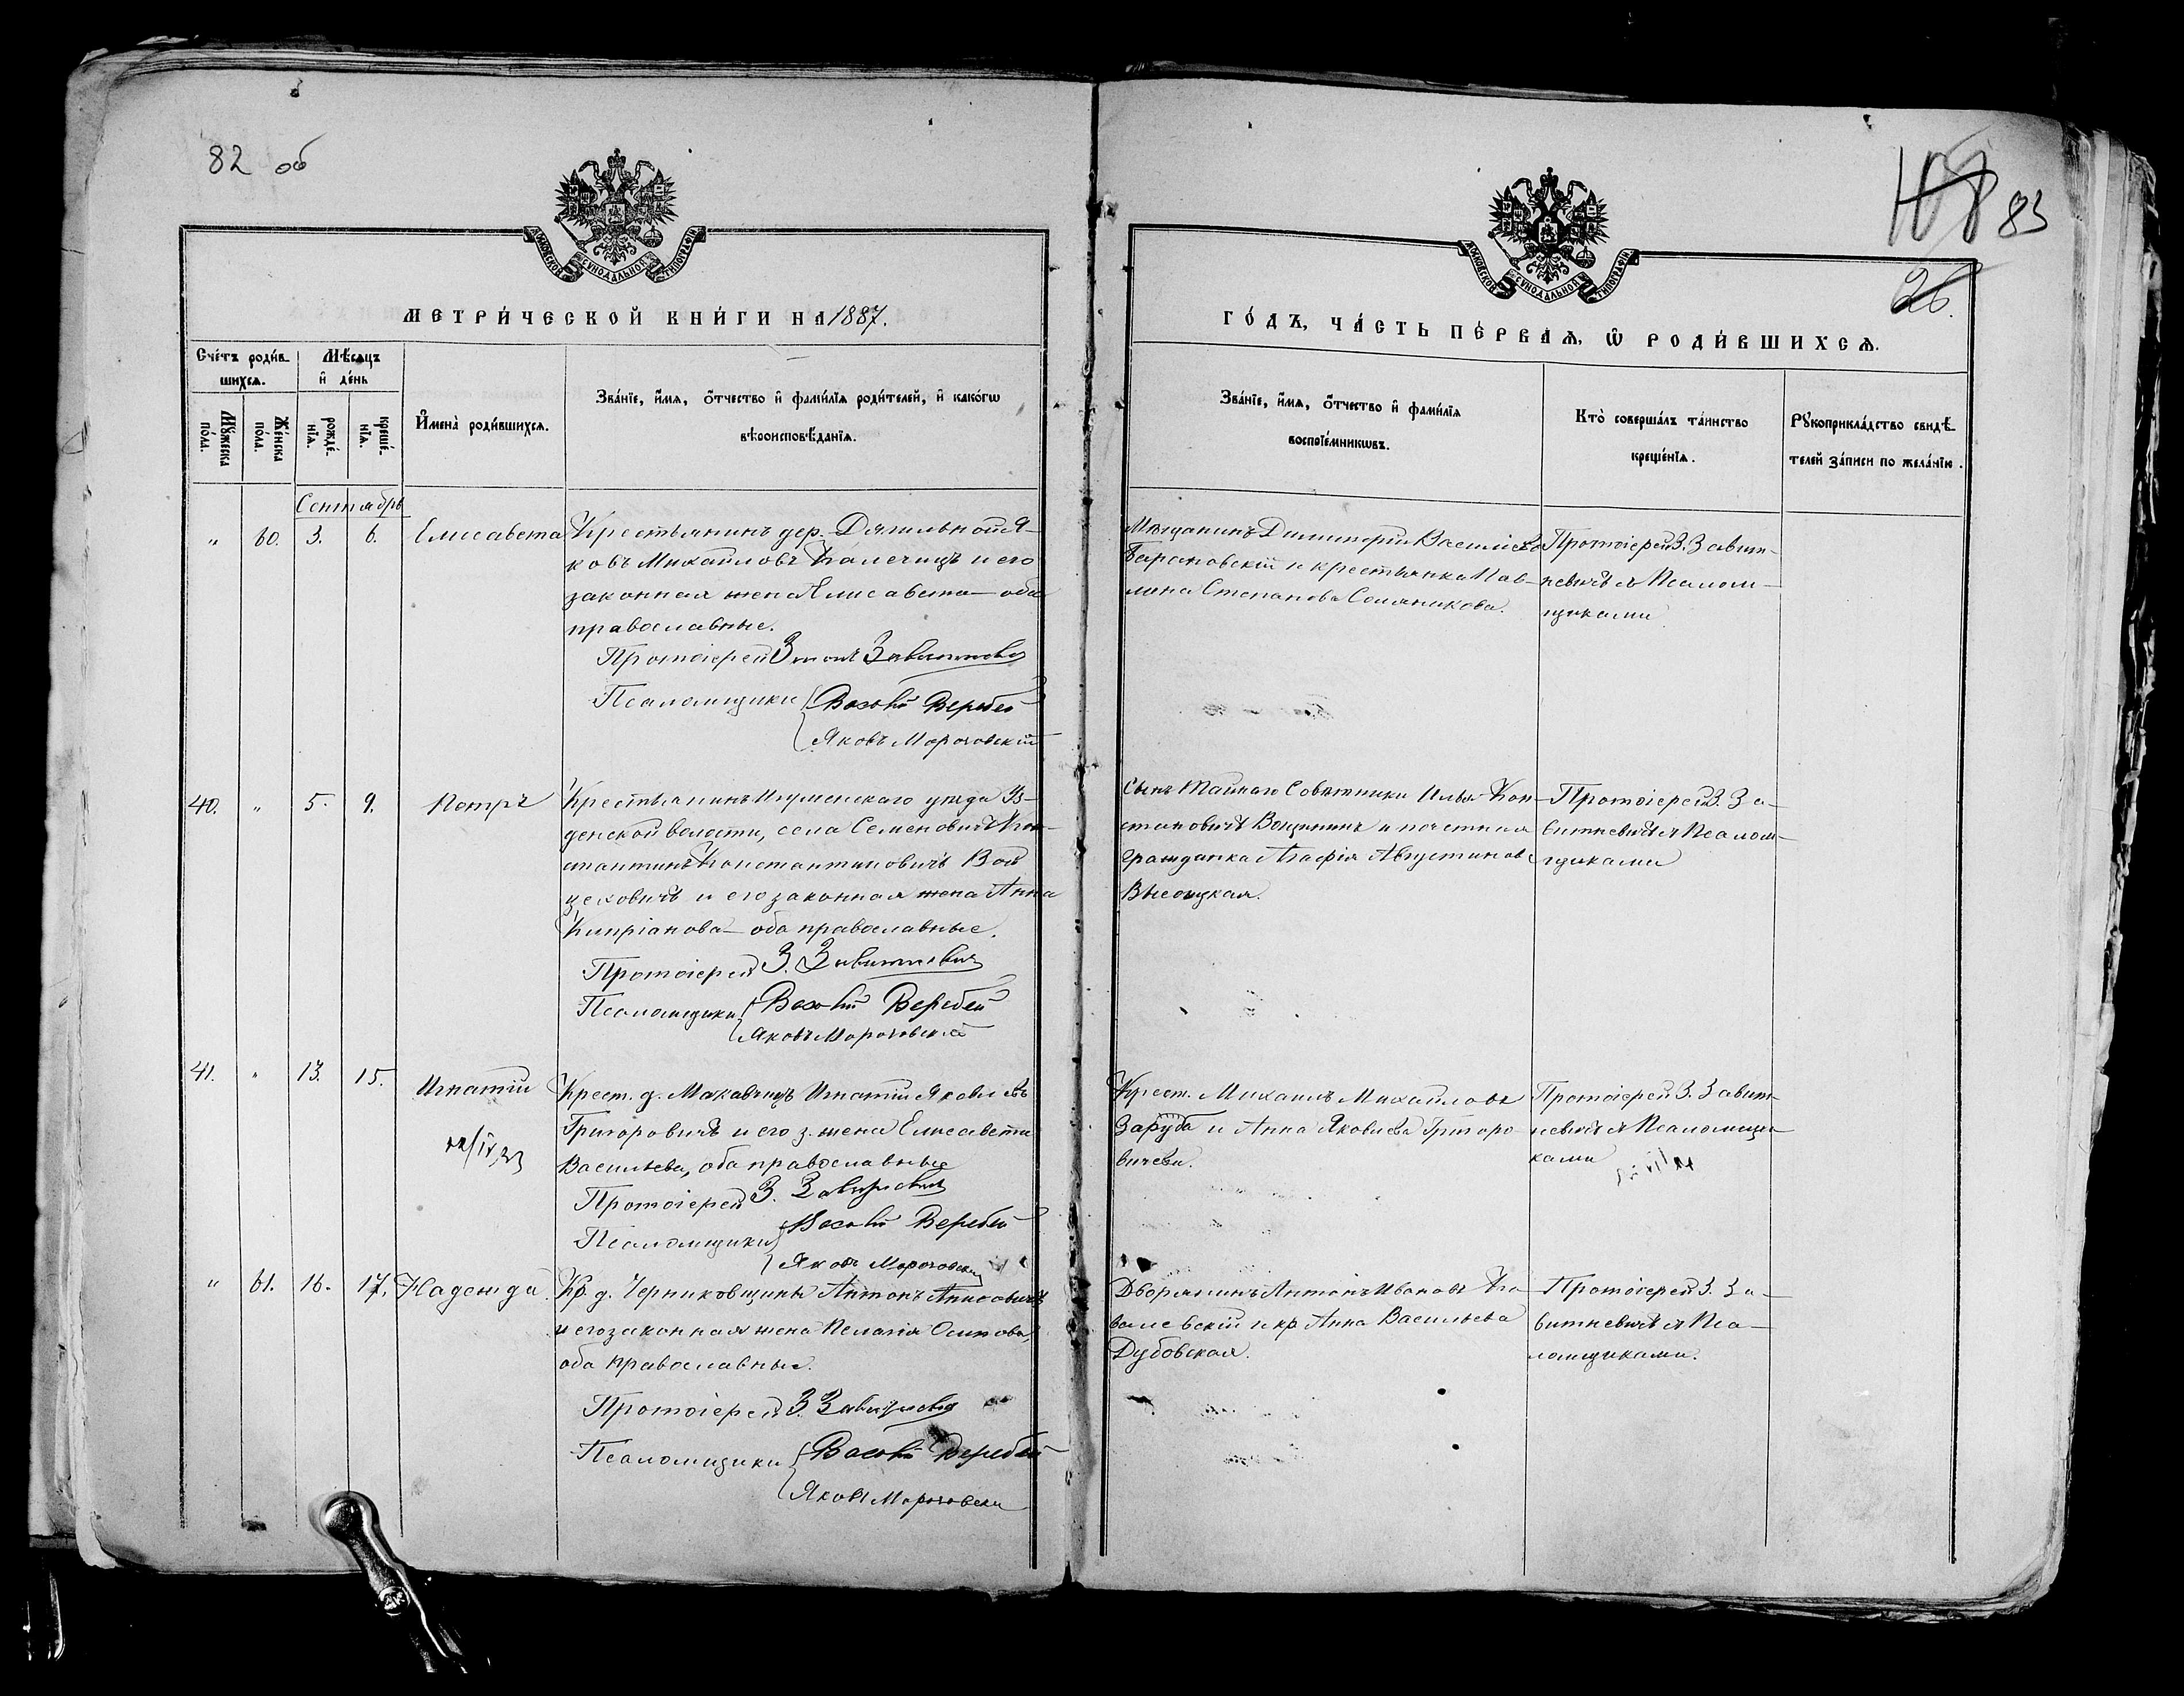 82 об
МОСКОВСКОЙ СѴНОДАЛЬНОЙ ТИПОГРАФІИ
МЕТРИ́ЧЕСКОЙ КНИ́ГИ НА 1887.
Сче́тъ роди́в-
шихсѧ.
Мѣ́сѧцъ
и҆ де́нь
Мꙋ́жеска по́ла.
Же́нска по́ла.
рожде́-
нїѧ.
креще́-
нїѧ.
И҆мена̀ роди́вшихсѧ.
Зва́нїе, и҆́мѧ, ѻ҆́тчество и҆ фами́лїѧ роди́телей, и҆ како́гѡ
вѣроисповѣ́данїѧ.
Сентябрь
" 60. 3. 6. Елисавета
Крестьянинъ дер. Дягильной Я-
ковъ Михайловъ Калечицъ и его
законная жена Елисавета — оба
православные.
Протоіерей
Псаломщики
Яковъ Морочовскій
40. " 5. 9. Петръ
Крестьянинъ Игуменскаго уезда Уз-
денской волости, села Семеновичъ Кон-
стантинъ Константиновичъ Вой
цеховичъ и его законная жена Анна
Кипріанова — оба православные.
Протоіерей З. Завитневич
Псаломщики
Яковъ Морочовскій
41. " 13. 15. Игнатій
Крест. д. Макавчицъ Игнатій Яковлевъ
Григоровичъ и его з. жена Елисавета
Васильева, оба православные
Протоіерей З.
Псаломщики
Яковъ Морочовскій
" 61. 16. 17. Надежда.
Кр. д. Черниковщины Антонъ
и его законная жена Пелагія Осипова,
оба православные.
Протоіерей З.
Псаломщики
Яковъ Морочовскій
83
26.
МОСКОВСКОЙ СѴНОДАЛЬНОЙ ТИПОГРАФІИ
ГО́ДЪ, ЧА́СТЬ ПЕ́РВАѦ, Ѡ҆ РОДИ́ВШИХСѦ.
Зва́нїе, и҆́мѧ, ѻ҆́тчество и҆ фами́лїѧ
воспрїе́мникѡвъ.
Кто̀ соверша́лъ та́инство
креще́нїѧ.
Рꙋкоприкла́дство свидѣ́-
телей за́писи по жела́нїю.
Мѣщанинъ Димитрій
Барановскій и крестьянка Пав-
лина Степанова
Протоіерей З. Завит-
невичъ съ Псалом-
щиками
Сынъ Тайнаго Совѣтника Илья Кон-
становичъ Вощининъ и почетная
гражданка Агафія Августинова
Высоцкая.
Протоіерей З. За-
витневичъ съ Псалом-
щиками
Крест. Михаилъ Михайловъ
Заруба и Анна Яковлева Григоро
вичева.
Протоіерей З. Завит-
невичъ съ Псаломщи
ками
Дворянинъ Антонъ Ивановъ Ко
валевскій и кр. Анна Васильева
Дубовская.
Протоіерей З. За-
витневичъ съ Пса-
ломщиками.